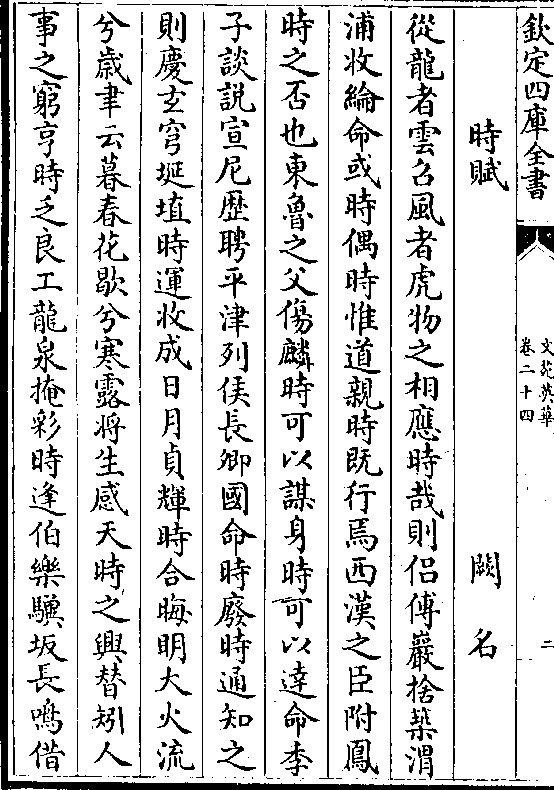 欽定四庫全書
文苑英華
卷二十四
二
時賦
闕名
從龍者雲召風者虎物之相應時哉則侣傅巖捨築渭
浦收綸命或時偶時惟道親時既行焉西漢之臣附鳳
時之否也東魯之父傷麟時可以謀身時可以達命李
子談説宣尼歴聘平津列侯長卿國命時廢時通知之
則慶玄穹埏埴時運收成日月貞輝時合晦明大火流
兮歳聿云暮春花歇兮寒露將生感天時之興替矧人
事之窮亨時乏良工龍泉掩彩時逢伯樂驥坂長鳴借